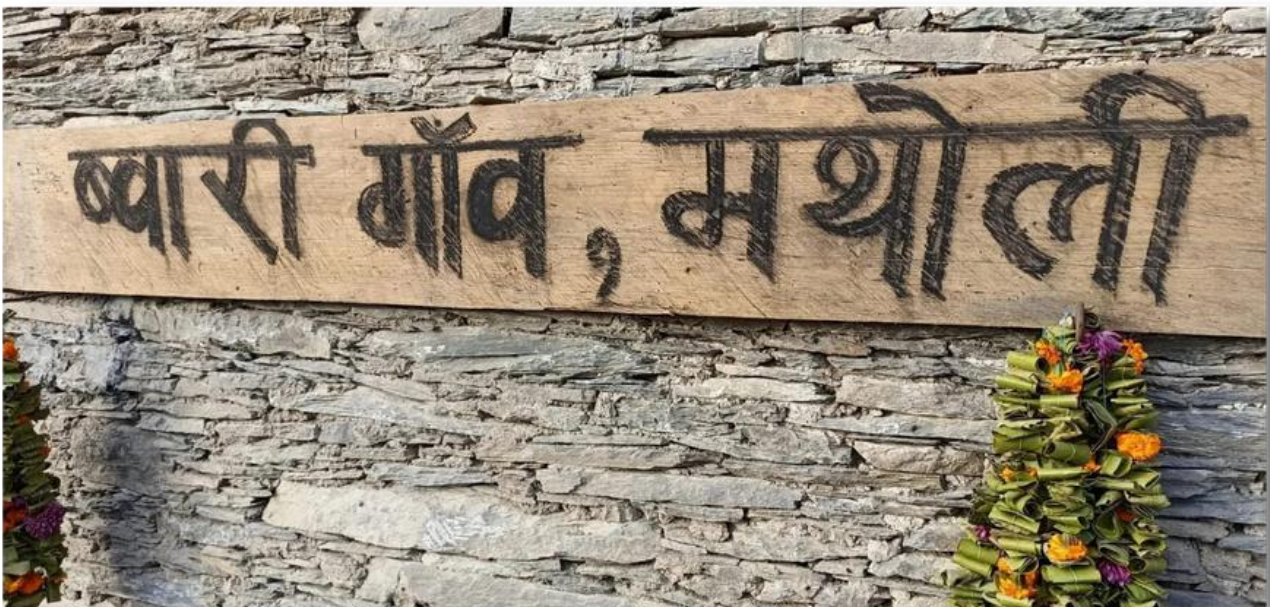 ब्वारी गाँव, मथोली